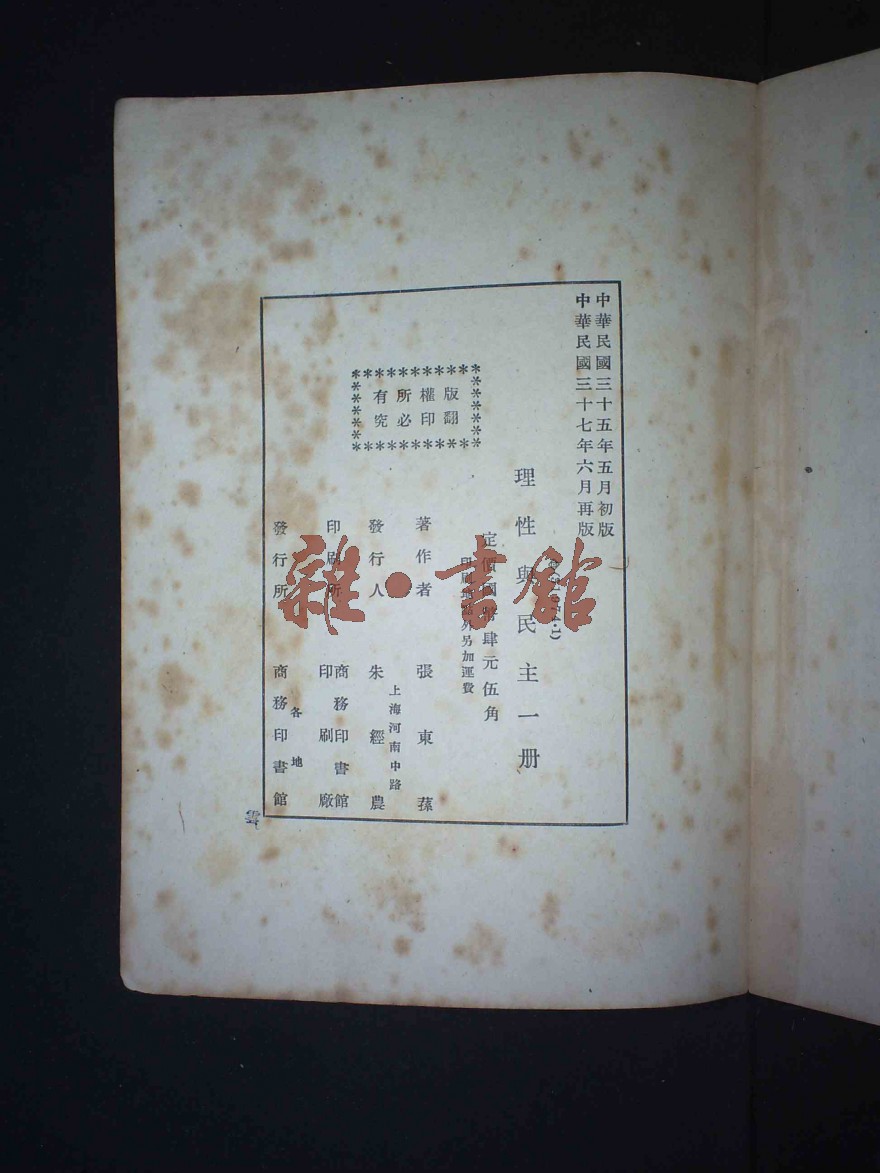 中華民國三十五年五月初版
中華民國三十七年六月再版
理性與民主一册
定價國幣肆元伍角
印刷地點外另加運費
版權所有
翻印必究
著作者 張東蓀
上海河南中路
發行人 朱經農
印刷所 商務印書館
印刷廠
各地
發行所 商務印書館
雜·書館